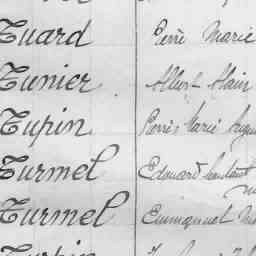 Tuard Pierre Marie
Tunier Albert Alain
Tupin Pierre Marie
Turmel Edouard
Turmel Emmanuel